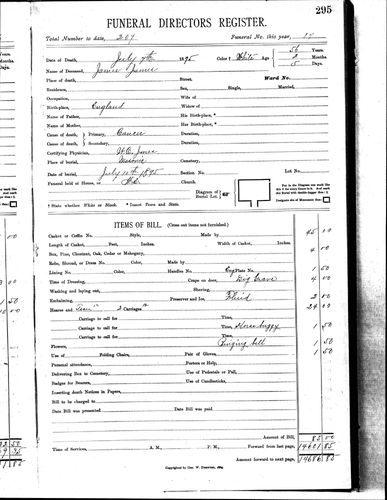 295
FUNERAL DIRECTORS REGISTER.
Total Number to date, 207 Funeral No. this year, 15
Date of Death, July 9th 1895 Color † White Age 56 Years.
2 Months
5 Days.
Name of Deceased,
Place of Death, Street. Ward No.
Residence, Sex, Single, Married,
Occupation, Wife of
Birth-place, England Widow of
Name of Father, His Birth-place,*
Name of Mother, Her Birth-place,*
Cause of death, Primary, Cancer Duration,
Cause of death, Secondary, Duration,
Certifying Physician,
Place of burial, Masonic Cemetery,
Date of burial, July 10th 1895 Section,
Funeral held at House, or Church.
Diagram of Burial Lot.
† State whether White or Black. * Insert Town and State.
ITEMS OF BILL. (Cross out items not furnished.)
Casket or Coffin No. Style, Made by 45 00
Length of Casket, Feet, Inches. Width of Casket, Inches. 4 00
Box, Pine, Chestnut, Oak, Cedar or Mahogany,
Robe, Shroud, or Dress No. Color, Made by
Lining No. Color, Handles No. Eng Plate No. 1 50
Time of Dressing, Crape on door, Dig Grave 4 00
Washing and laying out, Shaving,
Embalming, Preservar and Ice, Fluid 2 00
Hearse and Team 2 Carriages 24 00
Carriage to call for Time,
Carriage to call for Time, Horse buggy 1 50
Carriage to call for Time,
Flowers, Ringing bell 1 50
Use of Folding Chairs, Pair of Gloves, 1 50
Personal attendance, Porters or Help,
Delivering Box to Cemetery, Use of Pedestals or Pall,
Badges for Bearers, Use of Candlesticks,
Inserting death Notices in Papers,
Bill to be charged to
Date Bill was presented Date Bill was paid
Amount of Bill, 85 00
Time of Services, A. M., P. M., Forward last page, 14601 85
Amount forward to next page, 14686 85